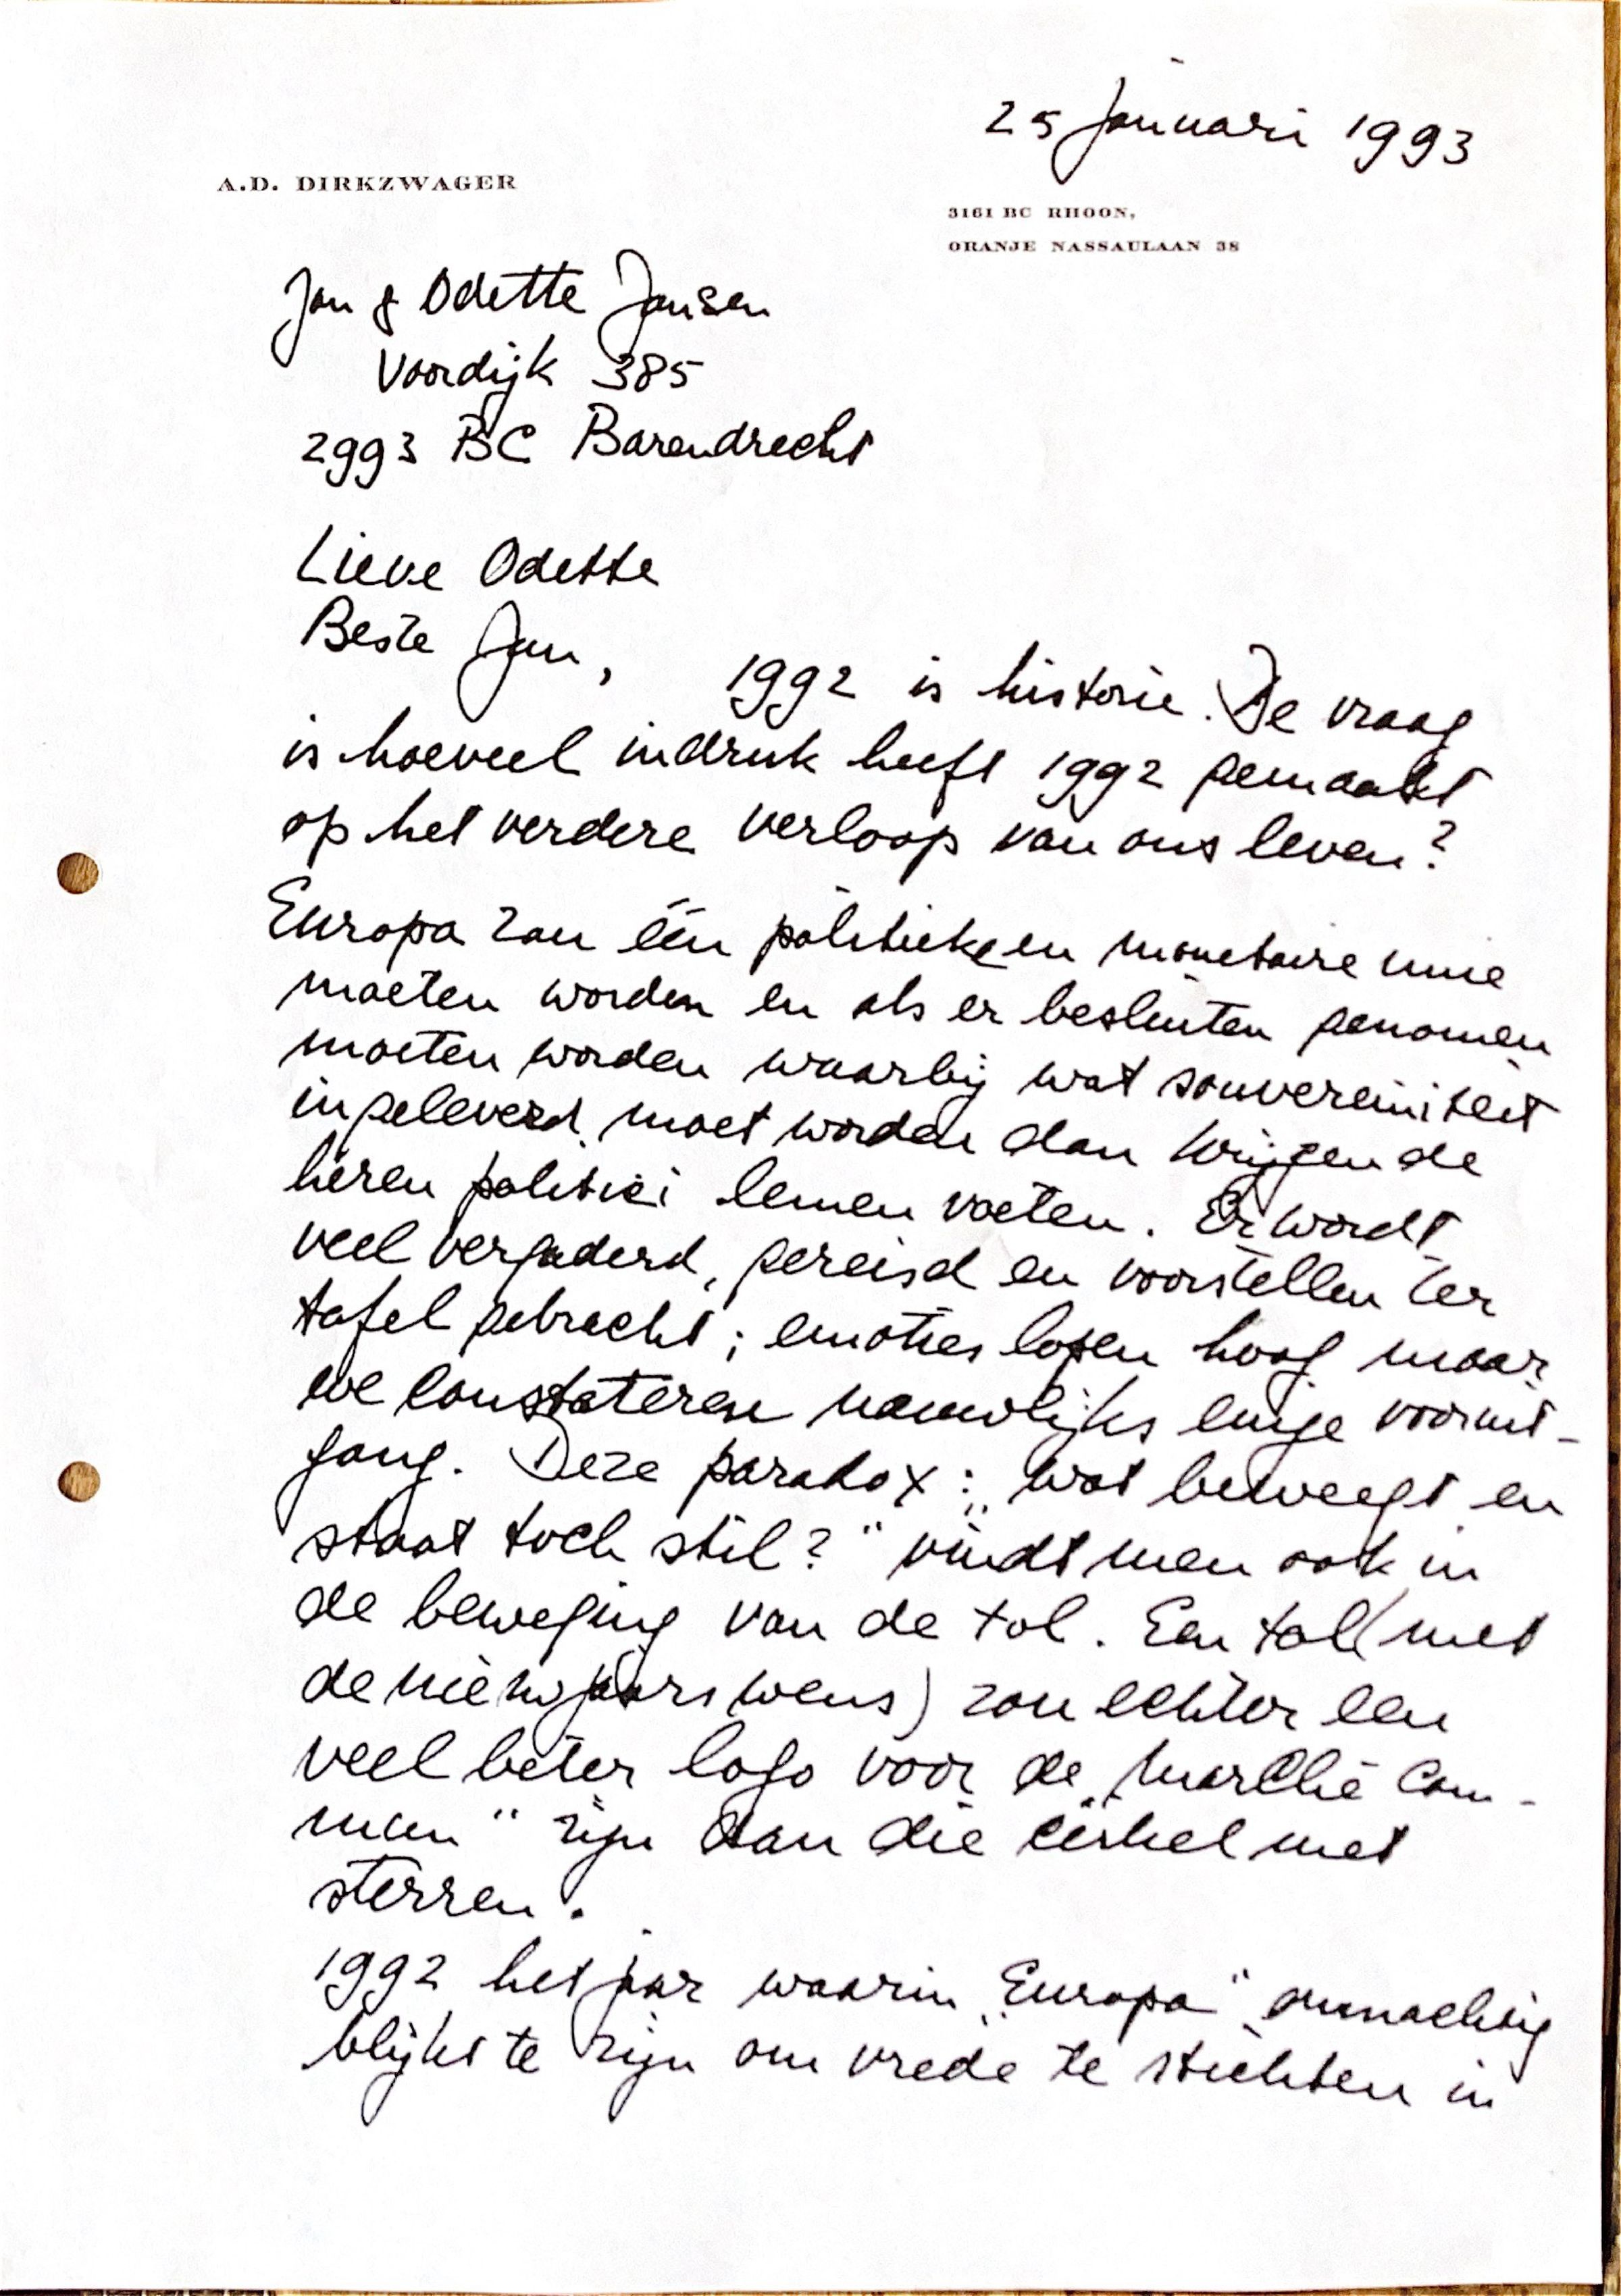 25 Januari 1993
A.D. DIRKZWAGER
3161 BC RHOON,
ORANJE NASSAULAAN 38
Jan & Odette Jansen
Voordijk 385
2993 BC Barendrecht
Lieve Odette
Beste Jan,
1992 is historie. De vraag
is hoeveel indruk heeft 1992 gemaakt
op het verdere verloop van ons leven?
Europa zou één politieke en monetaire unie
moeten worden en als er besluiten genomen
moeten worden waarbij wat souvereiniteit
ingeleverd moet worden dan krijgen de
heren politici lemen voeten. Er wordt
veel vergaderd, gereisd en voorstellen ter
tafel gebracht; emoties lopen hoog maar
we constateren nauwelijks enige vooruit-
gang. Deze paradox: "wat beweegt en
staat toch stil?" vindt men ook in
de beweging van de tol. Een tol (met
de nieuwjaarswens) zou echter een
veel beter logo voor de "Marché Com-
mun" zijn dan die cirkel met
sterren.
1992 het jaar waarin "Europa" onmachtig
blijkt te zijn om vrede te stichten in